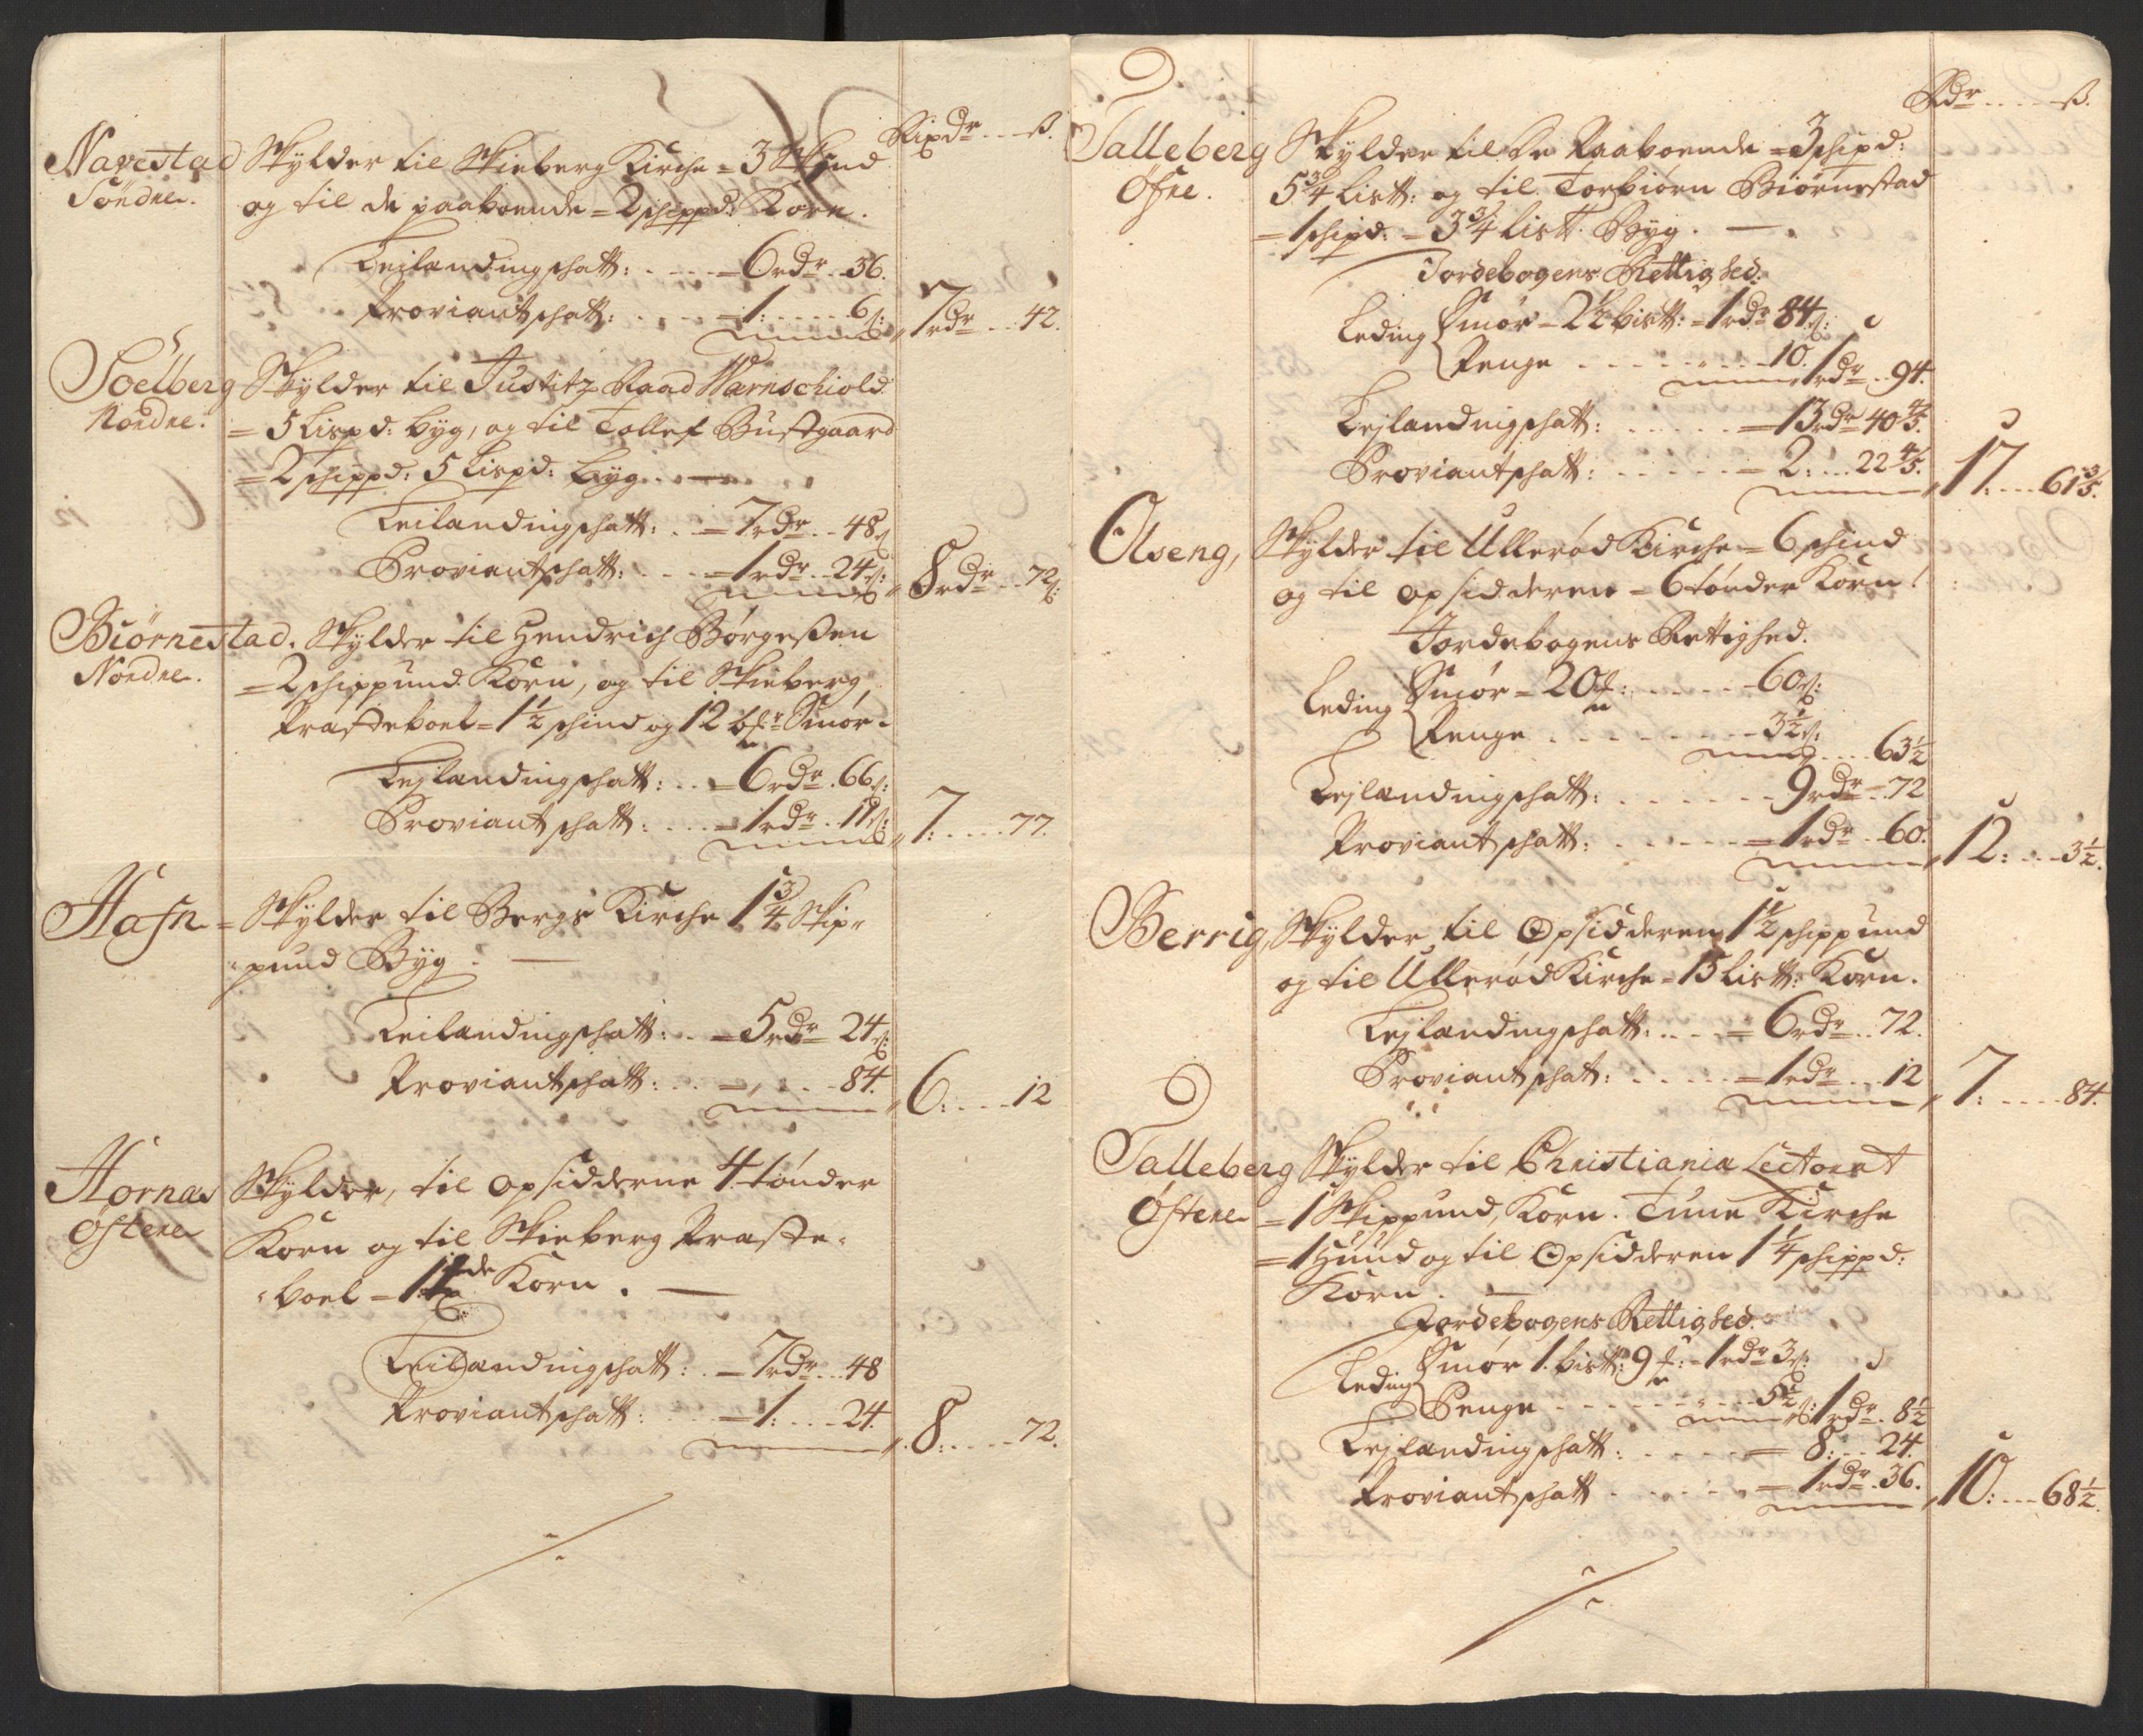 Rixdr ... ß.
Navestad Skylder til Skieberg Kirche = 3 Skind
Söndre. og til de paaboende = 2 schippd: Korn.
Leilandingschatt: . . . = 6 rdr .. 36.
Proviantschatt: . . . . = 1: ..... 6 s: 7 rdr ... 42.
Soelberg Skylder til Justitz Raad Wærnschiold
Nordre. = 5 Lispd: byg, og til Tollef Bustgaard
= 2 schippd: 5 Lispd: byg. —
Leilandingschatt: . . = 7 rdr .. 48 s
Proviantschatt: . . . = 1 rdr .. 24 s: 8 rdr .. 72 s:
Biörnestad. Skylder til Hendrich Börgeßen
Nordre. = 2 schippund Korn, og til Skieberg
Præsteboel = 1½ schind og 12 Smör.
Lejlandingschatt: . . = 6 rdr . 66 s:
Proviantschatt: . . . = 1 rdr . 11 s: 7: .... 77.
Hafn = Skylder til Bergs Kirche 1¾ Skip-
pund Byg. —
Leilandingschatt: . . = 5 rdr 24 s:
Proviantschatt: . . = „ . . . 84. 6: ... 12
Hornæs Skylder, til opsidderne 4 tönder
Östere Korn og til Skieberg Præste-
boel = 1 Korn. —
Leilandingschatt: . = 7 rdr ... 48
Proviantschatt: . . . = 1: ... 24. 8: .... 72.
Rdr .... ß.
Talleberg Skylder til de Paaboende = 3 schipd:
Öfre. 5¾ List: og til Torbiörn Biörnestad
= 1 schipd: = 3¾ List. Byg. —
Jordebogens Rettighed.
Leding Smör = 2½ bist: = 1 rdr 84 s:
Penge . . . . . . . 10. 1 rdr .. 94.
Lejlandingschatt: . . . . . = 13 rdr 40 4/5.
Proviantschatt: . . . . . = 2: ... 22 4/5. 17: ... 61 3/5.
Olseng, Skylder til Ullerød Kirche = 6 schind
og til opsidderen = 6 tönder Korn!
Jordebogens Rettighed.
Leding Smör = 20 . . . . . 60 s:
Penge . . . . . . . 3½ s: ... 63½
Lejlandingschatt: . . . . . . 9 rdr .. 72
Proviantschatt: . . . . . = 1 rdr .. 60. 12: ... 3½.
Berrig, Skylder til Opsidderen 1½ schippund
og til Ullerød Kirche = 15 List: Korn.
Lejlandingschatt: . . . = 6 rdr .. 72.
Proviantschat: . . . . . = 1 rdr ... 12 7: ..... 84.
Talleberg Skylder til Christiania Lectorat
Östere = 1 Skippund, Korn. Tune Kirche
= 1 Huud og til Opsidderen 1¼ schippd:
Korn. —
Jordebogens Rettighed.
Leding Smör 1. bist: 9 = 1 rdr 3 s:
Penge . . . . . . . . 5½ s: 1 rdr . 8½
Lejlandingschatt: . . . . . = 8: ... 24.
Proviantschatt . . . . . = 1 rdr . 36. 10: ... 68½.